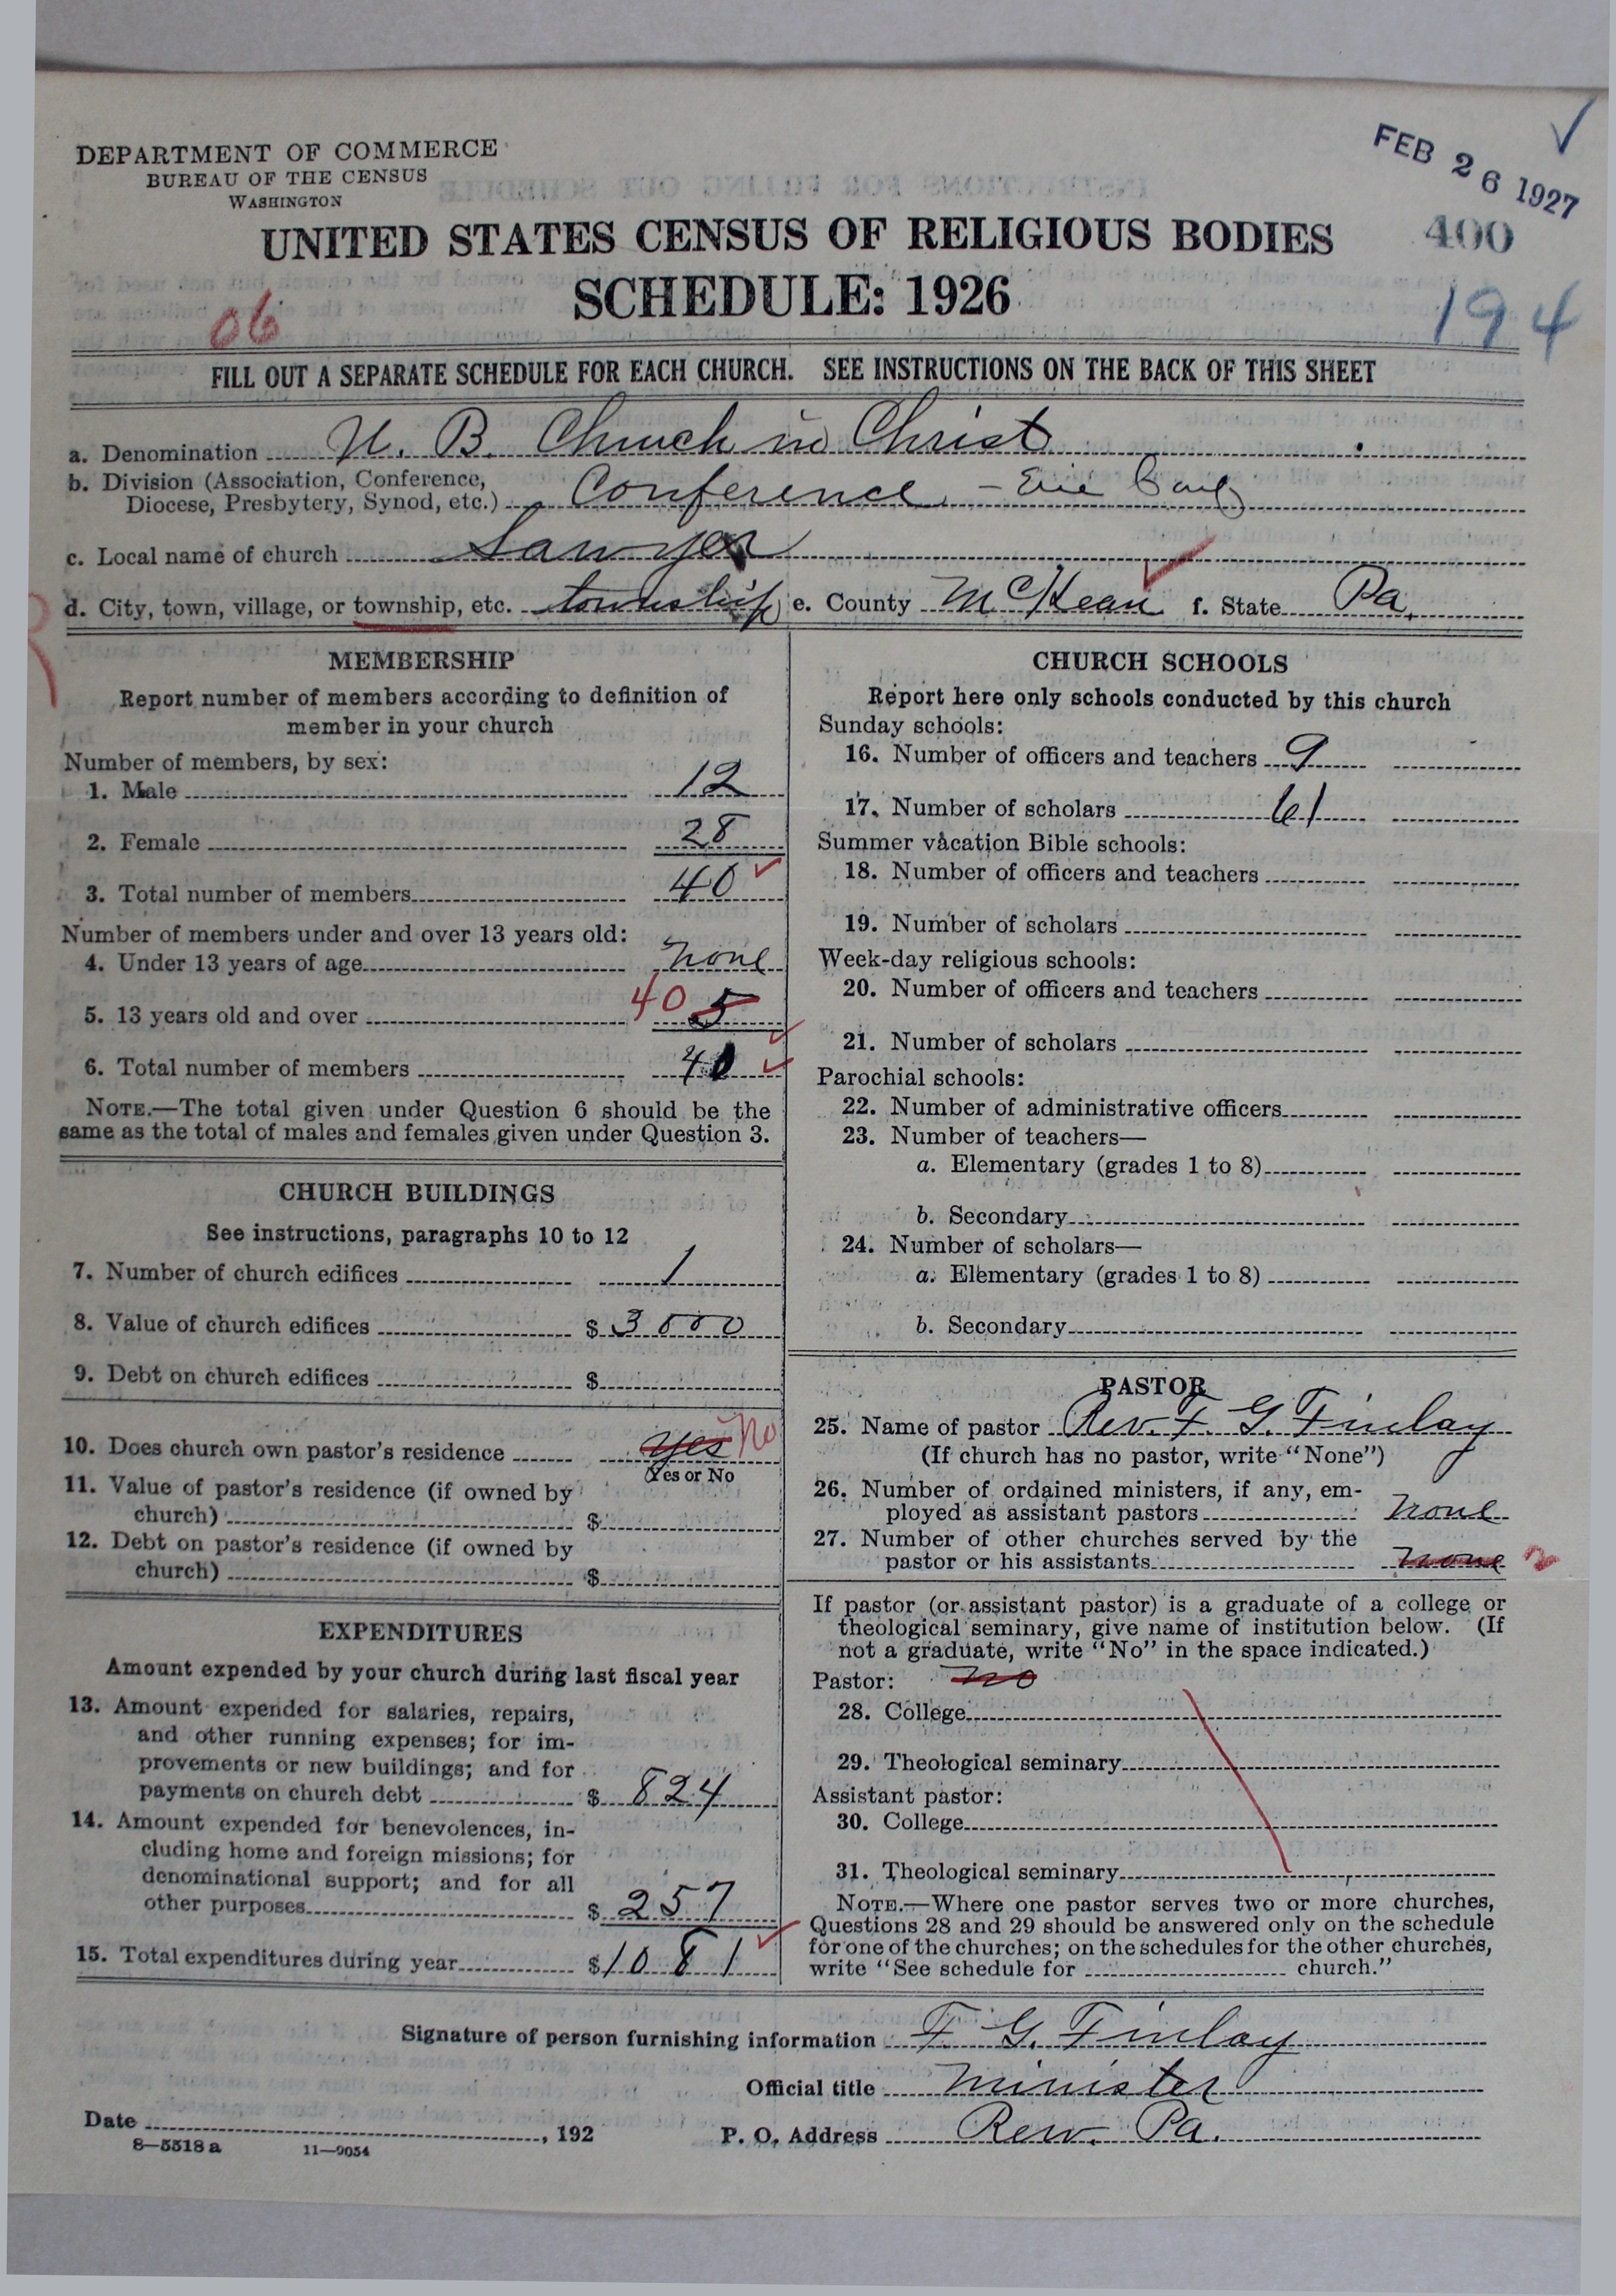 DEPARTMENT OF COMMERCE
BUREAU OF THE CENSUS
WASHINGTON
FEB 26 1927
UNITED STATES CENSUS OF RELIGIOUS BODIES
400
SCHEDULE: 1926
06
194
FILL OUT A SEPARATE SCHEDULE FOR EACH CHURCH. SEE INSTRUCTIONS ON THE BACK OF THIS SHEET
a. Denomination U. B. Church in Christ
b. Division (Association, Conference,
Diocese, Presbytery, Synod, etc.) Conference - Erie Conf
c. Local name of church Sawyer
d. City, town, village, or township, etc. township e. County McKean f. State Pa.
MEMBERSHIP
Report number of members according to definition of
member in your church
Number of members, by sex:
1. Male 12
2. Female 28
3. Total number of members 40
Number of members under and over 13 years old:
4. Under 13 years of age none
5. 13 years old and over 40 5
6. Total number of members 40
NOTE.—The total given under Question 6 should be the
same as the total of males and females given under Question 3.
CHURCH BUILDINGS
See instructions, paragraphs 10 to 12
7. Number of church edifices 1
8. Value of church edifices $ 3000
9. Debt on church edifices $
10. Does church own pastor's residence yes No
Yes or No
11. Value of pastor's residence (if owned by
church) $
12. Debt on pastor's residence (if owned by
church) $
EXPENDITURES
Amount expended by your church during last fiscal year
13. Amount expended for salaries, repairs,
and other running expenses; for im-
provements or new buildings; and for
payments on church debt $ 824
14. Amount expended for benevolences, in-
cluding home and foreign missions; for
denominational support; and for all
other purposes $ 257
15. Total expenditures during year $ 1081
CHURCH SCHOOLS
Report here only schools conducted by this church
Sunday schools:
16. Number of officers and teachers 9
17. Number of scholars 61
Summer vacation Bible schools:
18. Number of officers and teachers
19. Number of scholars
Week-day religious schools:
20. Number of officers and teachers
21. Number of scholars
Parochial schools:
22. Number of administrative officers
23. Number of teachers—
a. Elementary (grades 1 to 8)
b. Secondary
24. Number of scholars—
a. Elementary (grades 1 to 8)
b. Secondary
PASTOR
25. Name of pastor Rev. F. G. Finlay
(If church has no pastor, write "None")
26. Number of ordained ministers, if any, em-
ployed as assistant pastors none
27. Number of other churches served by the
pastor or his assistants none 2
If pastor (or assistant pastor) is a graduate of a college or
theological seminary, give name of institution below. (If
not a graduate, write "No" in the space indicated.)
Pastor: no
28. College
29. Theological seminary
Assistant pastor:
30. College
31. Theological seminary
NOTE.—Where one pastor serves two or more churches,
Questions 28 and 29 should be answered only on the schedule
for one of the churches; on the schedules for the other churches,
write "See schedule for church."
Signature of person furnishing information F. G. Finlay
Official title Minister
Date , 192
P. O. Address Rew. Pa.
8—5518 a 11—9054